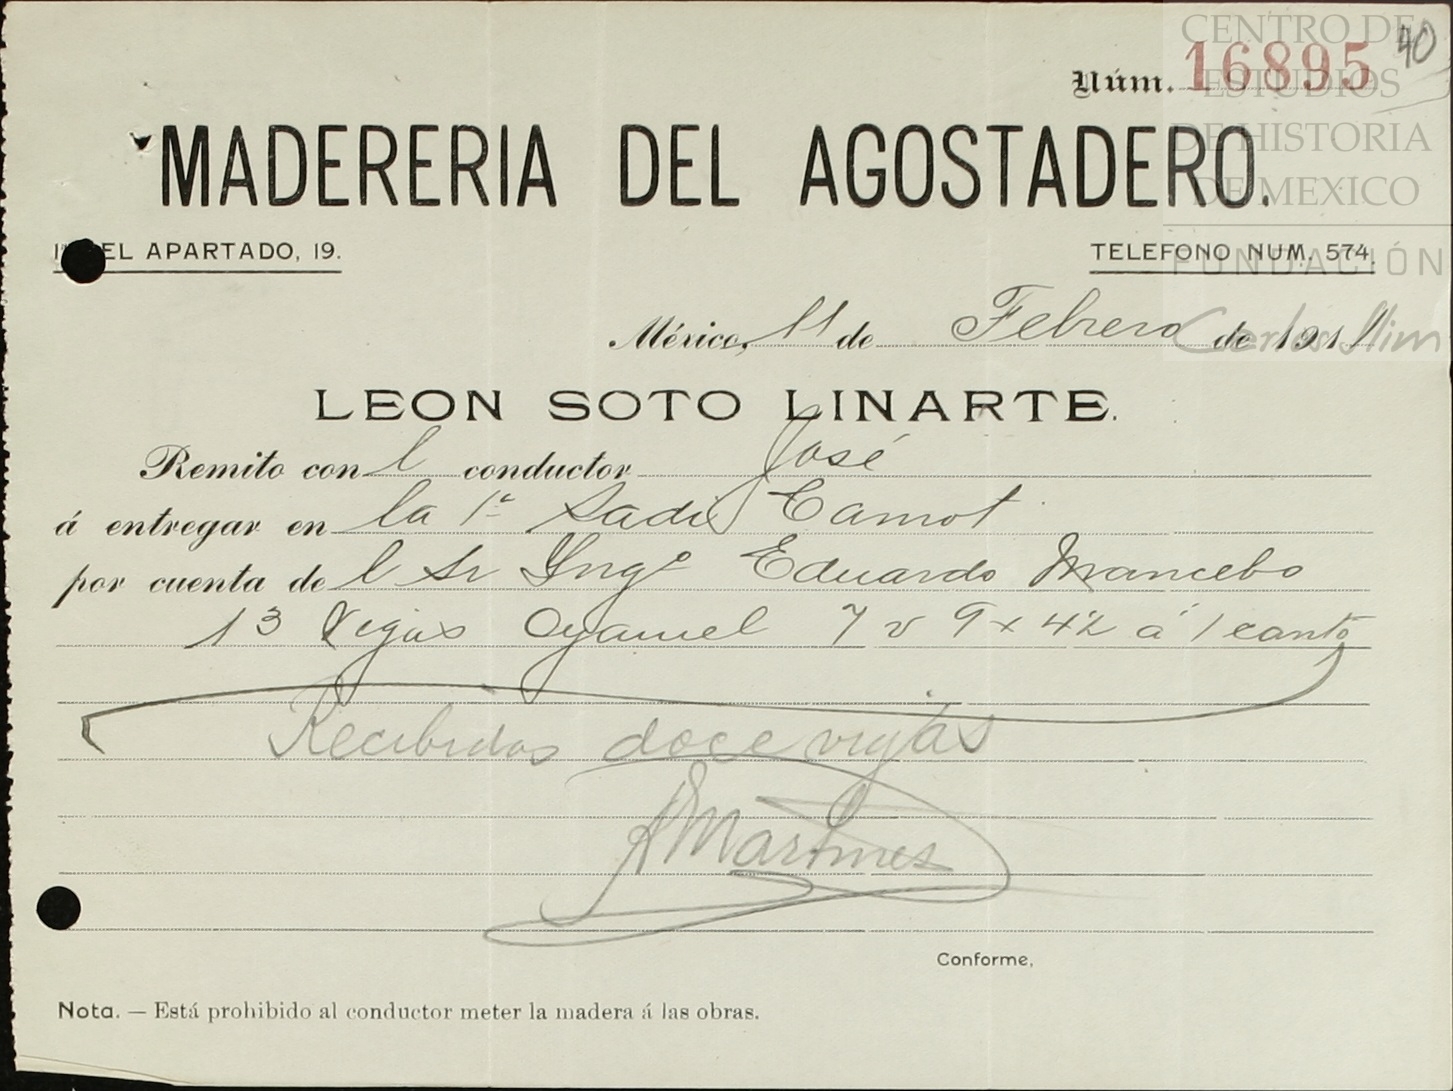 40
Núm. 16895
MADERERIA DEL AGOSTADERO.
EL APARTADO, 19.
TELEFONO NUM. 574.
México, 11 de Febrero de 1911
LEON SOTO LINARTE.
Remito con l conductor José
á entregar en la 1ª Sadi Carnot
por cuenta de l Sr Yngº Eduardo Mancebo
13 Vigas Oyamel 7 v 9 x 4½ á 1 canto
Recibidas doce vigas
Martines
Conforme,
Nota. — Está prohibido al conductor meter la madera á las obras.
CENTRO DE
ESTUDIOS
DE HISTORIA
DE MEXICO
FUNDACIÓN
Carlos Slim